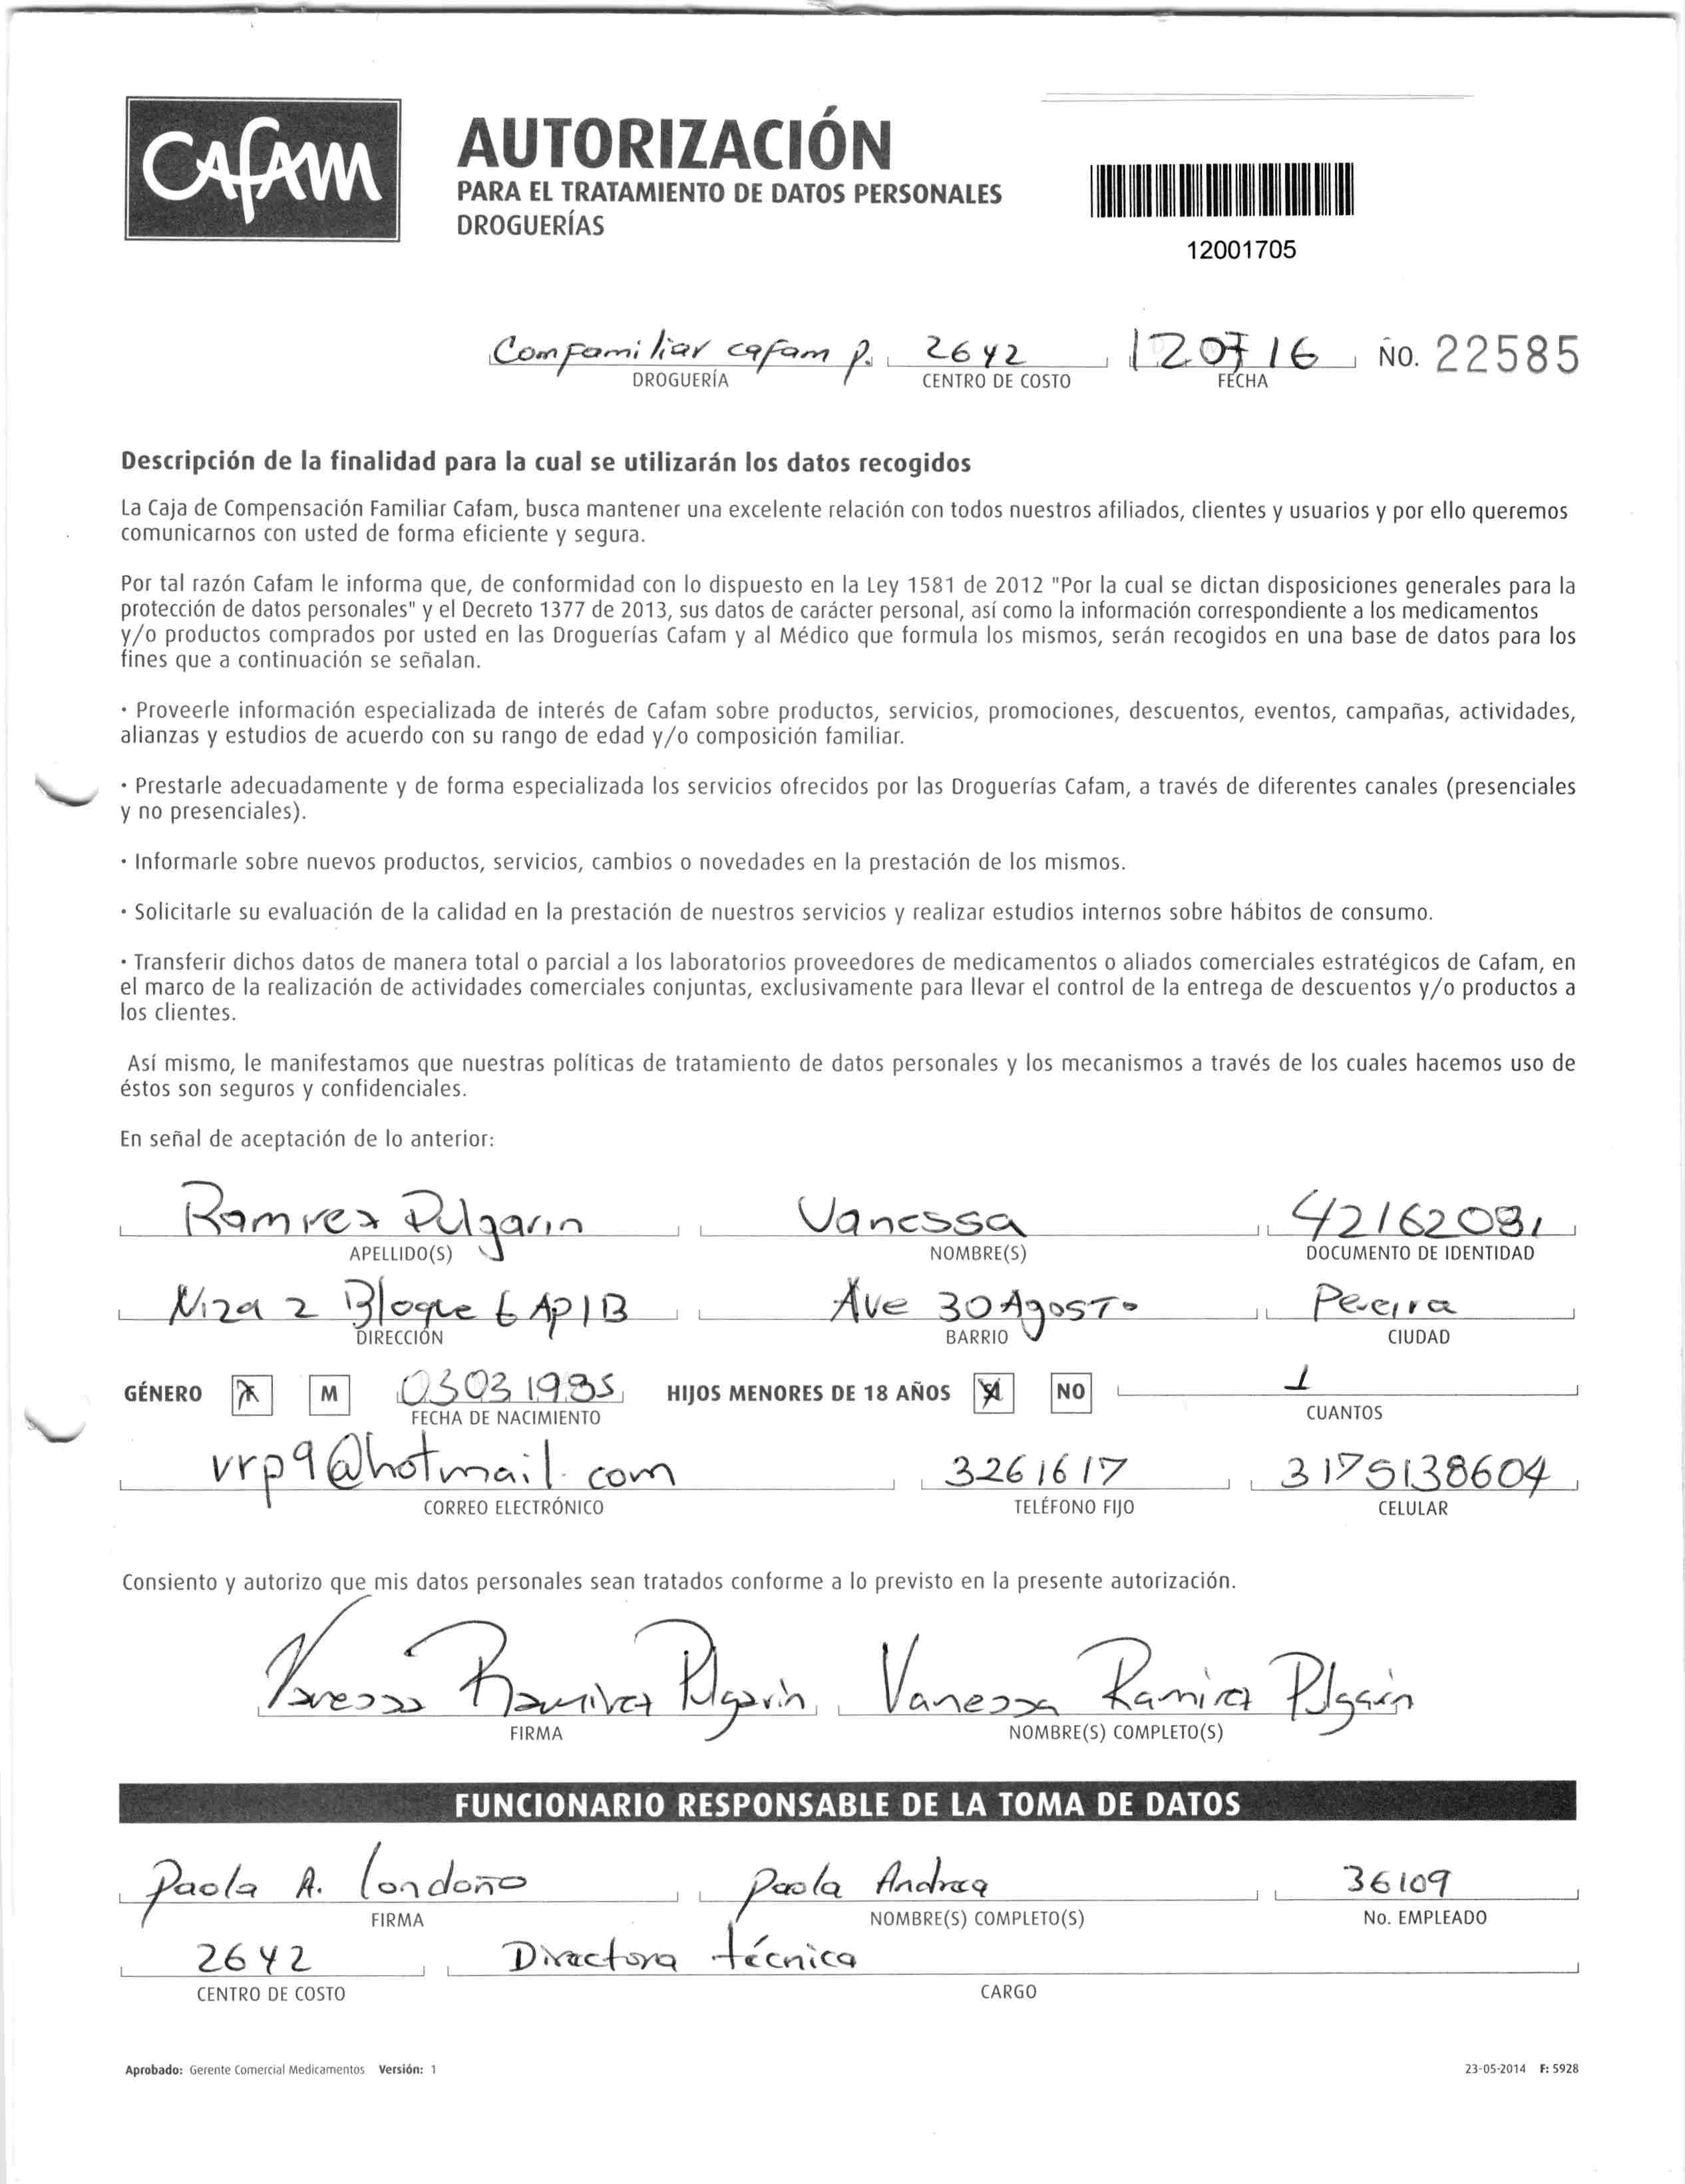 CAFAM
AUTORIZACIÓN
PARA EL TRATAMIENTO DE DATOS PERSONALES
DROGUERÍAS
12001705
Comfamiliar cafam p. 2642 120716 No. 22585
DROGUERÍA CENTRO DE COSTO FECHA
Descripción de la finalidad para la cual se utilizarán los datos recogidos
La Caja de Compensación Familiar Cafam, busca mantener una excelente relación con todos nuestros afiliados, clientes y usuarios y por ello queremos
comunicarnos con usted de forma eficiente y segura.
Por tal razón Cafam le informa que, de conformidad con lo dispuesto en la Ley 1581 de 2012 "Por la cual se dictan disposiciones generales para la
protección de datos personales" y el Decreto 1377 de 2013, sus datos de carácter personal, así como la información correspondiente a los medicamentos
y/o productos comprados por usted en las Droguerías Cafam y al Médico que formula los mismos, serán recogidos en una base de datos para los
fines que a continuación se señalan.
· Proveerle información especializada de interés de Cafam sobre productos, servicios, promociones, descuentos, eventos, campañas, actividades,
alianzas y estudios de acuerdo con su rango de edad y/o composición familiar.
· Prestarle adecuadamente y de forma especializada los servicios ofrecidos por las Droguerías Cafam, a través de diferentes canales (presenciales
y no presenciales).
· Informarle sobre nuevos productos, servicios, cambios o novedades en la prestación de los mismos.
· Solicitarle su evaluación de la calidad en la prestación de nuestros servicios y realizar estudios internos sobre hábitos de consumo.
· Transferir dichos datos de manera total o parcial a los laboratorios proveedores de medicamentos o aliados comerciales estratégicos de Cafam, en
el marco de la realización de actividades comerciales conjuntas, exclusivamente para llevar el control de la entrega de descuentos y/o productos a
los clientes.
Así mismo, le manifestamos que nuestras políticas de tratamiento de datos personales y los mecanismos a través de los cuales hacemos uso de
éstos son seguros y confidenciales.
En señal de aceptación de lo anterior:
Ramirez Pulgarin Vanessa 42162081
APELLIDO(S) NOMBRE(S) DOCUMENTO DE IDENTIDAD
Niza 2 Bloque 6 Ap 1B Ave 30 Agosto Pereira
DIRECCIÓN BARRIO CIUDAD
GÉNERO M 03031985 HIJOS MENORES DE 18 AÑOS SI NO 1
FECHA DE NACIMIENTO CUANTOS
vrp9@hotmail.com 3261617 3175138604
CORREO ELECTRÓNICO TELÉFONO FIJO CELULAR
Consiento y autorizo que mis datos personales sean tratados conforme a lo previsto en la presente autorización.
Vanessa Ramirez Pulgarin Vanessa Ramirez Pulgarin
FIRMA NOMBRE(S) COMPLETO(S)
FUNCIONARIO RESPONSABLE DE LA TOMA DE DATOS
Paola A. Londoño Paola Andrea 36109
FIRMA NOMBRE(S) COMPLETO(S) No. EMPLEADO
2642 Directora técnica
CENTRO DE COSTO CARGO
Aprobado: Gerente Comercial Medicamentos Versión: 1 23-05-2014 F: 5928